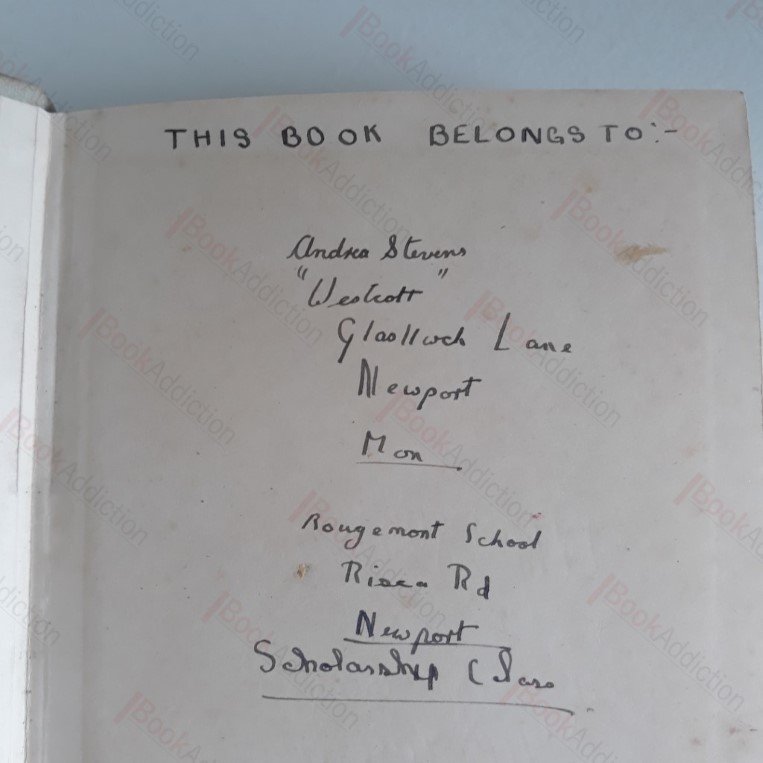 THIS BOOK BELONGS TO:-
Andrea Stevens
"Westcott"
Glasllwch Lane
Newport
Mon
Rougemont School
Risca Rd
Newport
Scholarship Class